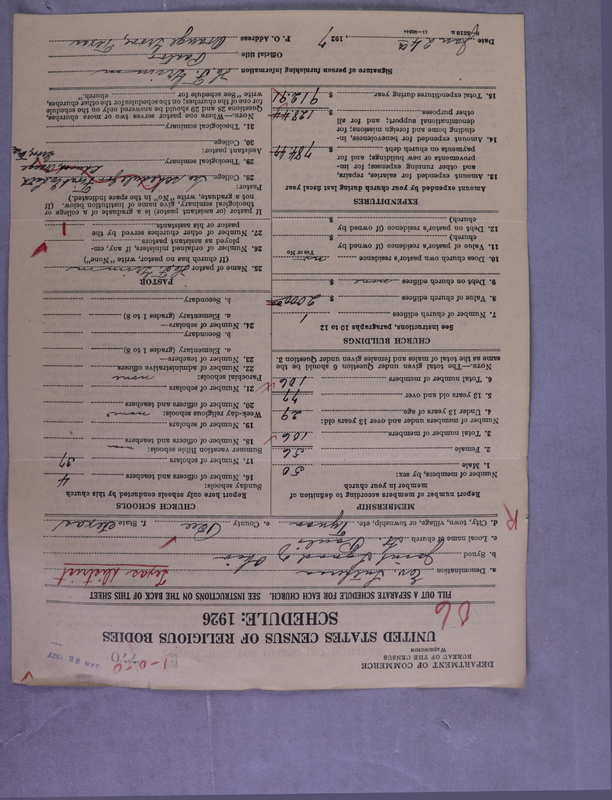 DEPARTMENT OF COMMERCE
BUREAU OF THE CENSUS
WASHINGTON
JAN 26 1927
UNITED STATES CENSUS OF RELIGIOUS BODIES
SCHEDULE: 1926
FILL OUT A SEPARATE SCHEDULE FOR EACH CHURCH. SEE INSTRUCTIONS ON THE BACK OF THIS SHEET
a. Denomination Ev. Lutheran
Texas District
b. Synod Joint Synod of Ohio
c. Local name of church St. Pauls
d. City, town, village, or township, etc. Tynan e. County Bee f. State Texas
MEMBERSHIP
Report number of members according to definition of
member in your church
Number of members, by sex:
1. Male 50
2. Female 56
3. Total number of members 106
Number of members under and over 13 years old:
4. Under 13 years of age 29
5. 13 years old and over 77
6. Total number of members 106
NOTE.—The total given under Question 6 should be the
same as the total of males and females given under Question 3.
CHURCH BUILDINGS
See instructions, paragraphs 10 to 12
7. Number of church edifices 1
8. Value of church edifices $ 2000.00
9. Debt on church edifices $ none
10. Does church own pastor's residence
Yes or No
11. Value of pastor's residence (if owned by
church) $
12. Debt on pastor's residence (if owned by
church) $
EXPENDITURES
Amount expended by your church during last fiscal year
13. Amount expended for salaries, repairs,
and other running expenses; for im-
provements or new buildings; and for
payments on church debt $ 784.47
14. Amount expended for benevolences, in-
cluding home and foreign missions; for
denominational support; and for all
other purposes 128.44
15. Total expenditures during year $ 912.91
CHURCH SCHOOLS
Report here only schools conducted by this church
Sunday schools:
16. Number of officers and teachers 4
17. Number of scholars 37
Summer vacation Bible schools:
18. Number of officers and teachers
19. Number of scholars
Week-day religious schools: none
20. Number of officers and teachers
21. Number of scholars
Parochial schools: none
22. Number of administrative officers
23. Number of teachers—
a. Elementary (grades 1 to 8)
b. Secondary
24. Number of scholars—
a. Elementary (grades 1 to 8)
b. Secondary
PASTOR
25. Name of pastor
(If church has no pastor, write "None")
26. Number of ordained ministers, if any, em-
ployed as assistant pastors
27. Number of other churches served by the
pastor or his assistants 1
If pastor (or assistant pastor) is a graduate of a college or
theological seminary, give name of institution below. (If
not a graduate, write "No" in the space indicated.)
Pastor:
28. College
29. Theological seminary
Assistant pastor:
30. College
31. Theological seminary
NOTE.—Where one pastor serves two or more churches,
Questions 28 and 29 should be answered only on the schedule
for one of the churches; on the schedules for the other churches,
write "See schedule for church."
Signature of person furnishing information
Official title Pastor
P. O. Address Orange Grove, Texas
Date Jan 24, 1927